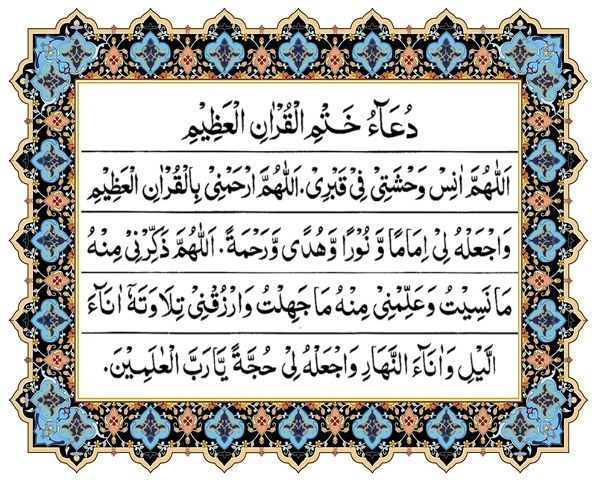 دُعَآءُ خَتْمِ الْقُرْاٰنِ الْعَظِيْمِ
اَللّٰهُمَّ اٰنِسْ وَحْشَتِيْ فِيْ قَبْرِيْ. اَللّٰهُمَّ ارْحَمْنِيْ بِالْقُرْاٰنِ الْعَظِيْمِ
وَاجْعَلْهُ لِيْ اِمَامًا وَّ نُوْرًا وَّهُدًى وَّرَحْمَةً. اَللّٰهُمَّ ذَكِّرْنِيْ مِنْهُ
مَا نَسِيْتُ وَعَلِّمْنِيْ مِنْهُ مَا جَهِلْتُ وَارْزُقْنِيْ تِلَاوَتَهٗ اٰنَآءَ
الَّيْلِ وَاٰنَآءَ النَّهَارِ وَاجْعَلْهُ لِيْ حُجَّةً يَّا رَبَّ الْعٰلَمِيْنَ.